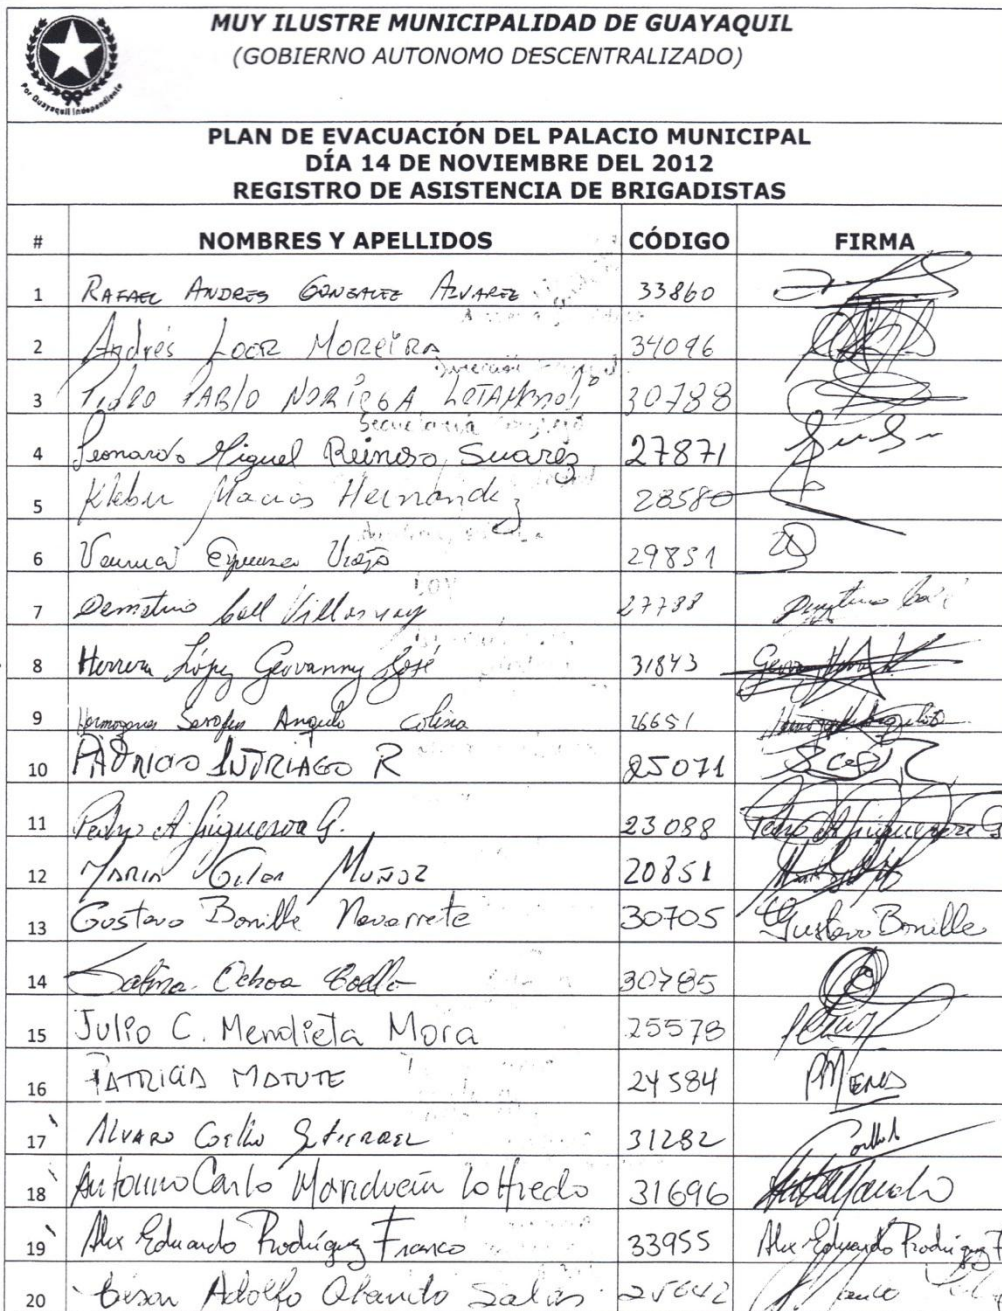 MUY ILUSTRE MUNICIPALIDAD DE GUAYAQUIL
(GOBIERNO AUTONOMO DESCENTRALIZADO)
Por Guayaquil Independiente
PLAN DE EVACUACIÓN DEL PALACIO MUNICIPAL
DÍA 14 DE NOVIEMBRE DEL 2012
REGISTRO DE ASISTENCIA DE BRIGADISTAS
# NOMBRES Y APELLIDOS CÓDIGO FIRMA
1 RAFAEL ANDRES GONZALEZ ALVAREZ 33860
2 Andrés Loor Moreira 34096
3 PABLO 30788
4 Leonardo Miguel Reinoso Suarez 27871
5 Kleber Macias Hernandez 28580
6 29851
7 Demetrio Coll 27788
8 Herrera López Geovanny José 31843
9 Angulo Colina 26651
10 PATRICIO INTRIAGO R 25071
11 Pedro A Figueroa G. 23088 Pedro A Figueroa G
12 MARIA Giler MUÑOZ 20851
13 Gustavo Bonilla Navarrete 30705 Gustavo Bonilla
14 Ochoa Coello 30785
15 Julio C. Mendieta Mora 25578
16 PATRICIA MATUTE 24584
17 ALVARO Coello Gutierrez 31282
18 Antonio Carlo Maridueña Loffredo 31696
19 Alex Eduardo Rodriguez Franco 33955 Alex Eduardo Rodriguez F
20 Adolfo Obando Salas 25642